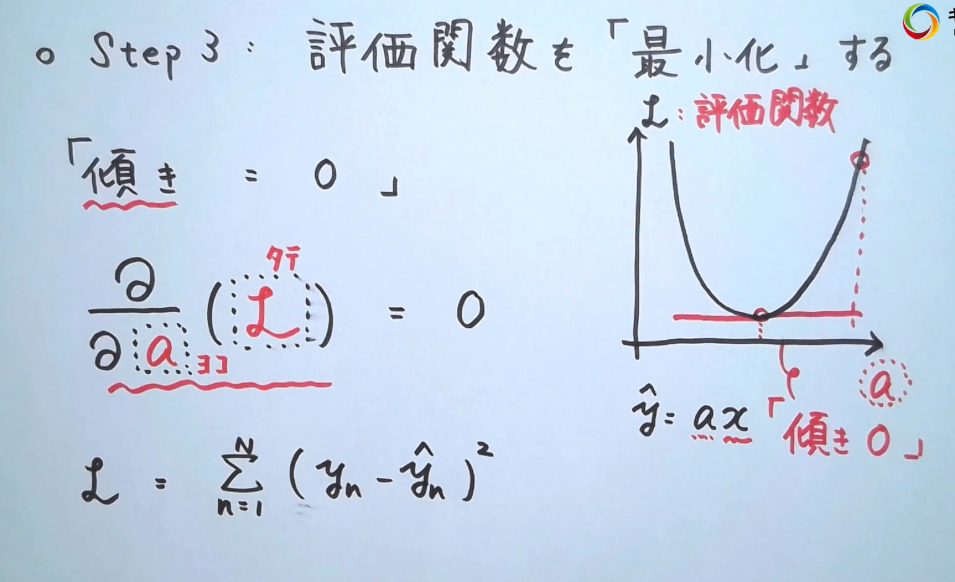 ○ Step 3 : 評価関数を「最小化」する
「傾き = 0」
∂/∂a (L) = 0
タテ
ヨコ
L = Σ_{n=1}^{N} (y_n - ŷ_n)^2
L : 評価関数
a
ŷ = ax
「傾き 0」